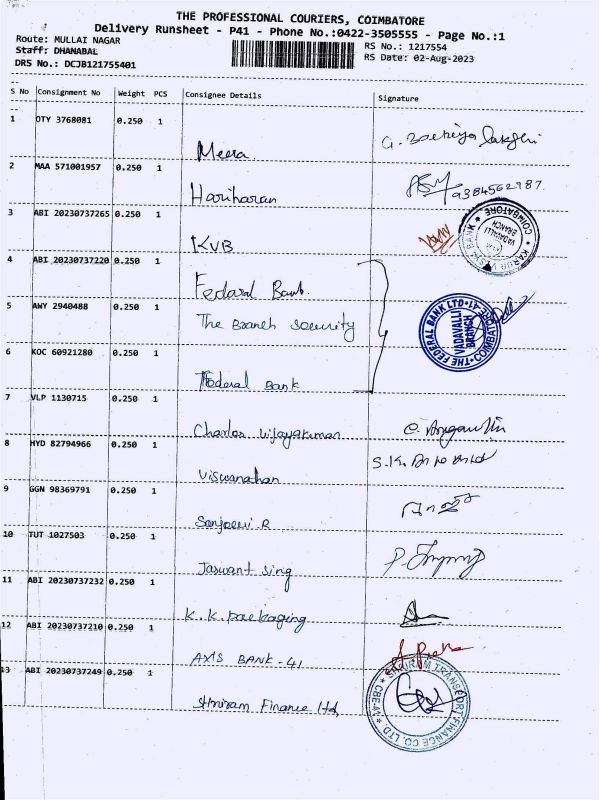 THE PROFESSIONAL COURIERS, COIMBATORE
Delivery Runsheet - P41 - Phone No.:0422-3505555 - Page No.:1
Route: MULLAI NAGAR
Staff: DHANABAL
DRS No.: DCJB121755401
RS No.: 1217554
RS Date: 02-Aug-2023
S No Consignment No Weight PCS Consignee Details Signature
1 OTY 3768081 0.250 1
Meera
2 MAA 571001957 0.250 1
Hariharan 9384562987
3 ABI 20230737265 0.250 1
KVB
KARUR BANK COIMBATORE VADAVALLI BRANCH
4 ABI 20230737220 0.250 1
Federal Bank
5 AWY 2940488 0.250 1
The Branch Security
THE FEDERAL BANK LTD. COIMBATORE-41 VADAVALLI BRANCH
6 KOC 60921280 0.250 1
Federal Bank
7 VLP 1130715 0.250 1
Charles Vijayakumar
8 HYD 82794966 0.250 1
Viswanathan S.K.
9 GGN 98369791 0.250 1
Sanjeevi R
10 TUT 1027503 0.250 1
Jaswant Sing
11 ABI 20230737232 0.250 1
K.K. Packaging
12 ABI 20230737210 0.250 1
AXIS BANK-41
13 ABI 20230737249 0.250 1
Shriram Finance Ltd,
SHRIRAM TRANSPORT FINANCE CO. LTD. CBE-41